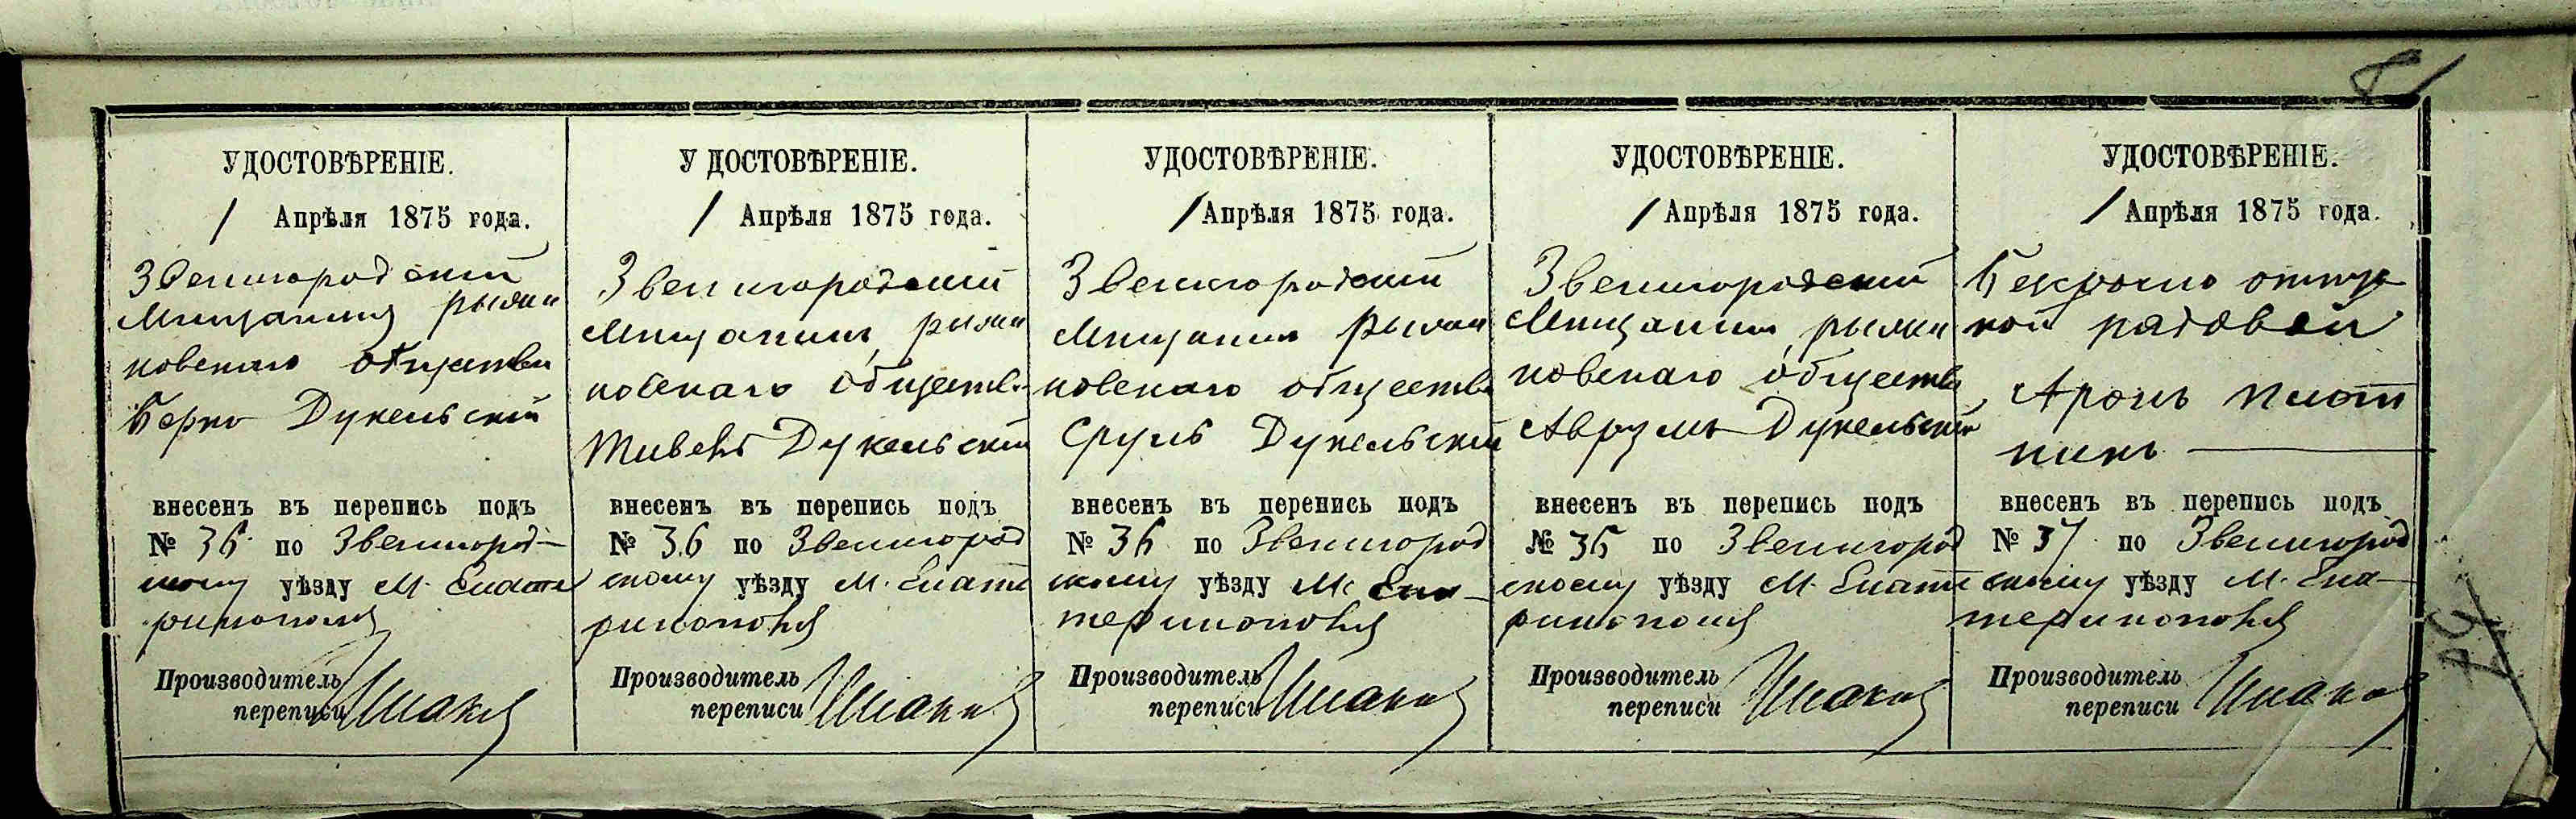 УДОСТОВѢРЕНІЕ.
1 Апрѣля 1875 года.
Звенигородскій
Мищанинъ рыжа
новскаго общества
Берко Дукельскій
внесенъ въ перепись подъ
№ 36 по Звенигород-
скому уѣзду М. Екате
ринополя
Производитель
переписи
У ДОСТОВѢРЕНІЕ.
1 Апрѣля 1875 года.
Звенигородскій
Мищанинъ рыжа
новскаго общества
Дукельскій
внесенъ въ перепись подъ
№ 36 по Звенигород
скому уѣзду М. Екате
ринополя
Производитель
переписи
УДОСТОВѢРЕНІЕ.
1 Апрѣля 1875 года.
Звенигородскій
Мищанинъ рыжа
новскаго общества
Сруль Дукельскій
внесенъ въ перепись подъ
№ 36 по Звенигород
скому уѣзду М. Ека-
теринополя
Производитель
переписи
УДОСТОВѢРЕНІЕ.
1 Апрѣля 1875 года.
Звенигородскій
Мищанинъ рыжа
новскаго общества
Аврумъ Дукельскій
внесенъ въ перепись подъ
№ 36 по Звенигород
скому уѣзду М. Екате
ринополя
Производитель
переписи
УДОСТОВѢРЕНІЕ.
1 Апрѣля 1875 года.
ной рядовой
Аронъ
внесенъ въ перепись подъ
№ 37 по Звенигород
скому уѣзду М. Ека-
теринополя
Производитель
переписи